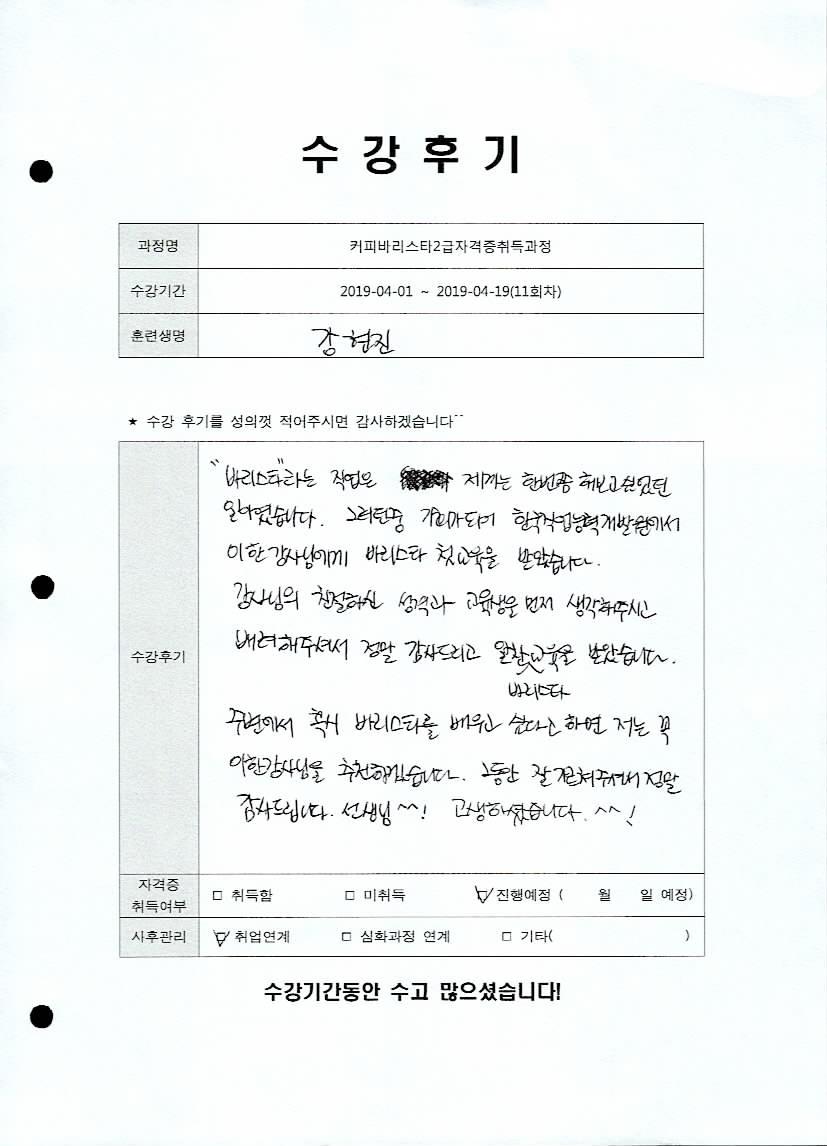 수 강 후 기
과정명 커피바리스타2급자격증취득과정
수강기간 2019-04-01 ~ 2019-04-19(11회차)
훈련생명 강현진
★ 수강 후기를 성의껏 적어주시면 감사하겠습니다^^
수강후기
"바리스타"라는 직업은 제게는 한번쯤 해보고싶었던
일이였습니다. 그러던중 한국직업능력개발원에서
이한강사님에게 바리스타 첫교육을 받았습니다.
강사님의 친절하신 성격과 교육생을 먼저 생각해주시고
배려해주셔서 정말 감사드리고 알찬교육을 받았습니다.
바리스타
주변에서 혹시 바리스타를 배우고 싶다고하면 저는 꼭
이한강사님을 추천하겠습니다. 그동안 잘 가르쳐주셔서 정말
감사드립니다. 선생님 ^^! 고생하셨습니다. ^^!
자격증
취득여부 □ 취득함 □ 미취득 ☑ 진행예정 ( 월 일 예정)
사후관리 ☑ 취업연계 □ 심화과정 연계 □ 기타( )
수강기간동안 수고 많으셨습니다!